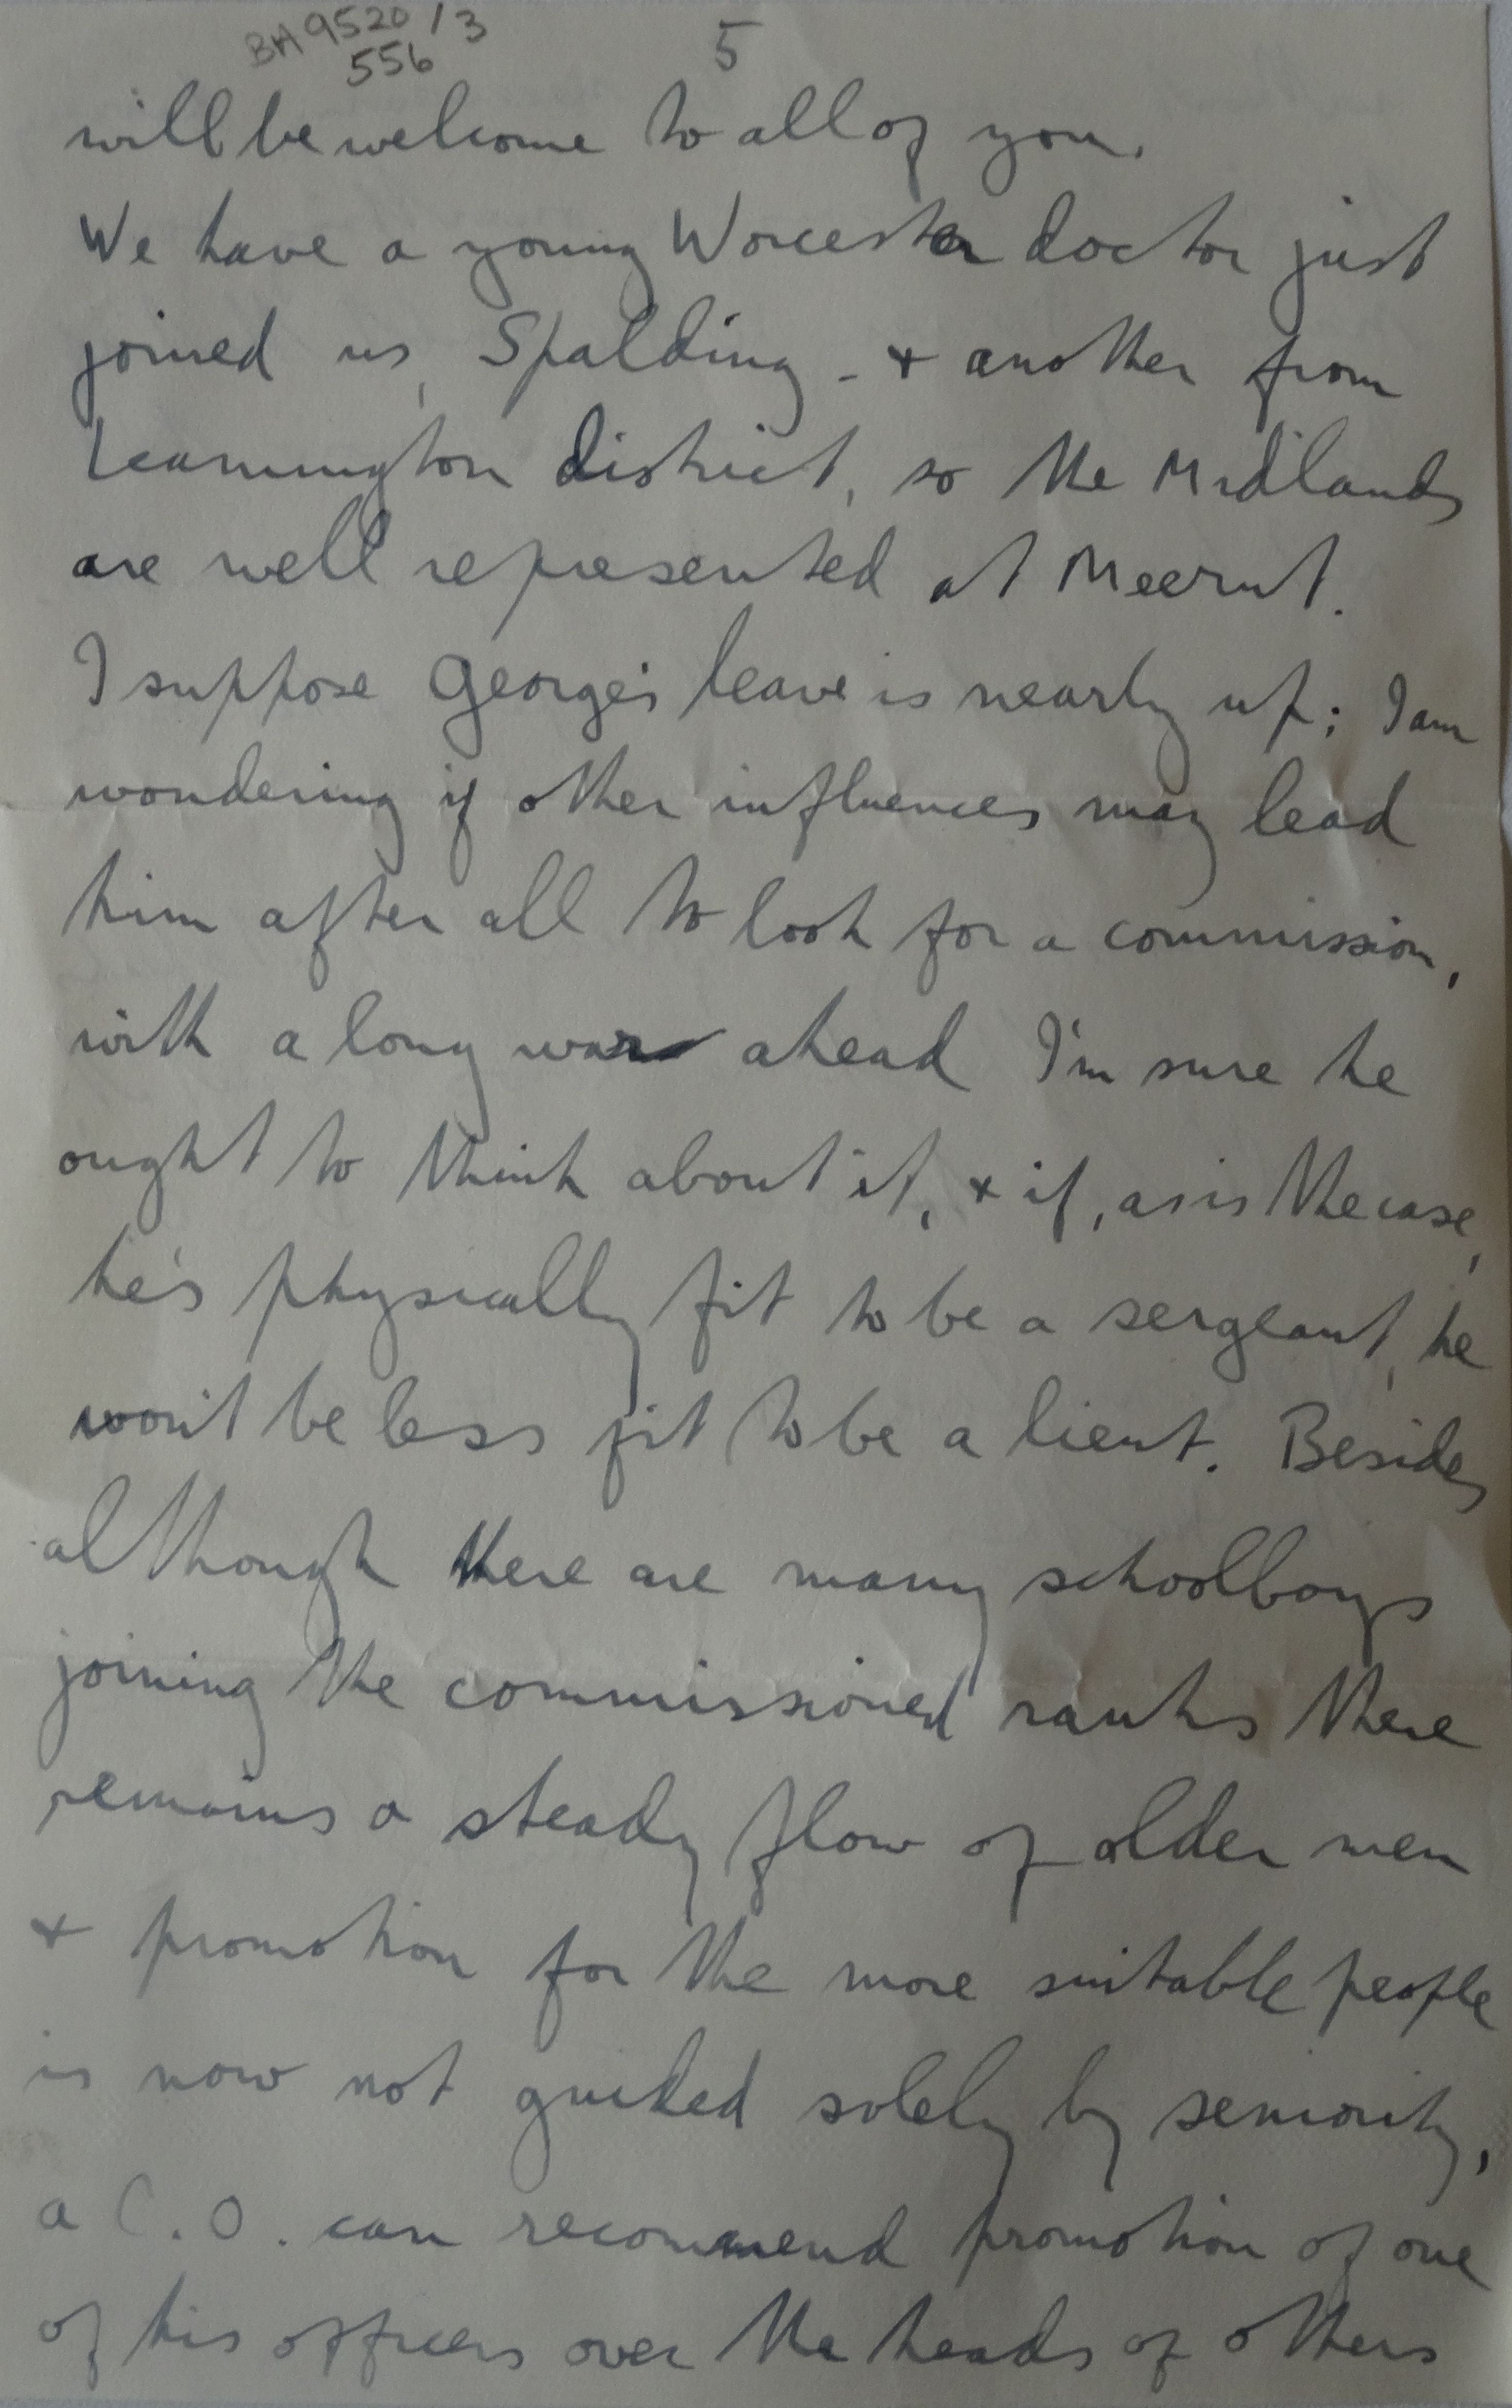 BA 9520/3
556
5
will be welcome to all of you.
We have a young Worcester doctor just
joined us, Spalding - + another from
Leamington district, so the Midlands
are well represented at Meerut.
I suppose George's leave is nearly up; I am
wondering if other influences may lead
him after all to look for a commission,
with a long war ahead I'm sure he
ought to think about it, + if, as is the case,
he's physically fit to be a sergeant, he
won't be less fit to be a lieut. Besides
although there are many schoolboys
joining the commissioned ranks there
remains a steady flow of older men
+ promotion for the more suitable people
is now not guided solely by seniority,
a C.O. can recommend promotion of one
of his officers over the heads of others